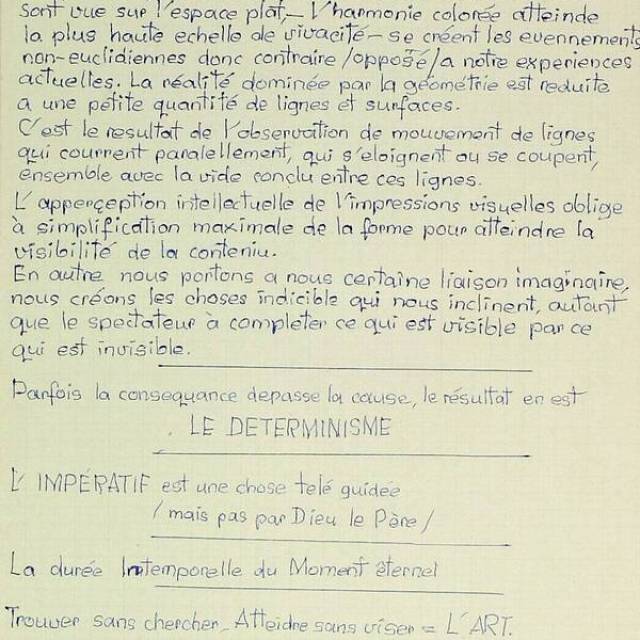 sont vue sur l'espace plat,- L'harmonie colorée atteinde
la plus haute echelle de vivacité - se créent les evennements
non-euclidiennes donc contraire /opposé/ a notre experiences
actuelles. La réalité dominée par la géométrie est reduite
a une petite quantité de lignes et surfaces.
C'est le resultat de l'observation de mouvement de lignes
qui courrent paralellement, qui s'eloignent ou se coupent,
ensemble avec la vide conclu entre ces lignes.
L'apperçeption intellectuelle de l'impressions visuelles oblige
à simplification maximale de la forme pour atteindre la
visibilité de la conteniu.
En autre nous portons a nous certaîne liaison imaginaire,
nous créons les choses indicible qui nous inclinent, autant
que le spectateur à completer ce qui est visible par ce
qui est invisible.
Parfois la consequance depasse la cause, le résultat en est
LE DETERMINISME
L'IMPÉRATIF est une chose telé guidée
/mais pas par Dieu le Père/
La durée Intemporelle du Moment êternel
Trouver sans chercher_ Atteidre sans viser = L'ART.